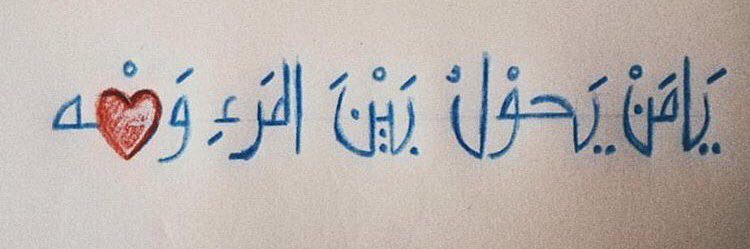 يَا مَنْ يَحوْلُ بَيْنَ المَرءِ وَ❤️ْـه